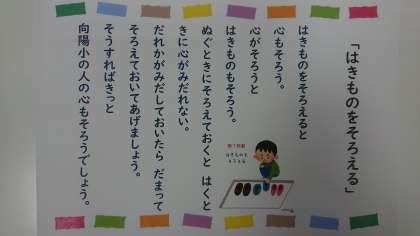 「はきものをそろえる」
はきものをそろえると
心もそろう。
心がそろうと
はきものもそろう。
ぬぐときにそろえておくと はくと
きに心がみだれない。
だれかがみだしておいたら だまって
そろえておいてあげましょう。
そうすればきっと
向陽小の人の心もそろうでしょう。
はきものを
そろえる